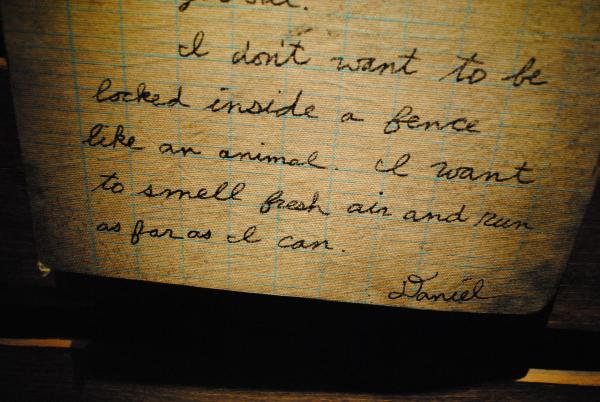 you all.
I don't want to be
locked inside a fence
like an animal. I want
to smell fresh air and run
as far as I can.
Daniel